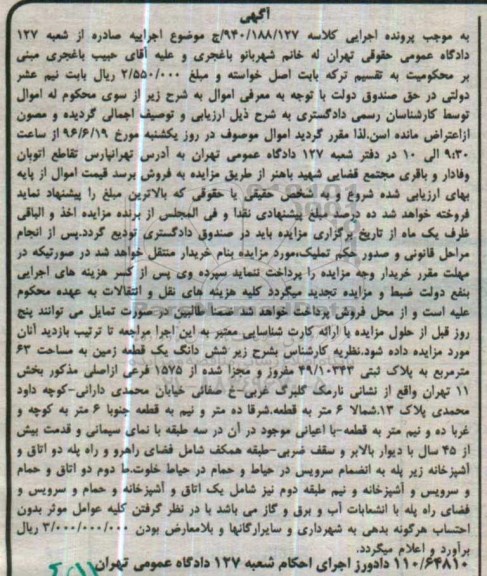 آگهی
به موجب پرونده اجرایی کلاسه ۹۴۰/۱۸۸/۱۲۷/ج موضوع اجراییه صادره از شعبه ۱۲۷
دادگاه عمومی حقوقی تهران له خانم شهربانو باغجری و علیه آقای حبیب باغجری مبنی
بر محکومیت به تقسیم ترکه بابت اصل خواسته و مبلغ ۲/۵۵۰/۰۰۰ ریال بابت نیم عشر
دولتی در حق صندوق دولت با توجه به معرفی اموال به شرح زیر از سوی محکوم له اموال
توسط کارشناسان رسمی دادگستری به شرح ذیل ارزیابی و توصیف اجمالی گردیده و مصون
ازاعتراض مانده اسن.لذا مقرر گردید اموال موصوف در روز یکشنبه مورخ ۹۶/۶/۱۹ از ساعت
۹:۳۰ الی ۱۰ در دفتر شعبه ۱۲۷ دادگاه عمومی تهران به آدرس تهرانپارس تقاطع اتوبان
وفادار و باقری مجتمع قضایی شهید باهنر از طریق مزایده به فروش برسد قیمت اموال از پایه
بهای ارزیابی شده شروع و به شخص حقیقی یا حقوقی که بالاترین مبلغ را پیشنهاد نماید
فروخته خواهد شد ده درصد مبلغ پیشنهادی نقدا و فی المجلس از برنده مزایده اخذ و الباقی
ظرف یک ماه از تاریخ برگزاری مزایده باید در صندوق دادگستری تودیع گردد.پس از انجام
مراحل قانونی و صدور حکم تملیک،مورد مزایده بنام خریدار منتقل خواهد شد در صورتیکه در
مهلت مقرر خریدار وجه مزایده را پرداخت ننماید سپرده وی پس از کسر هزینه های اجرایی
بنفع دولت ضبط و مزایده تجدید میگردد کلیه هزینه های نقل و انتقالات به عهده محکوم
علیه است و از محل فروش پرداخت خواهد شد ضمنا طالبین در صورت تمایل می توانند پنج
روز قبل از حلول مزایده با ارائه کارت شناسایی معتبر به این اجرا مراجعه تا ترتیب بازدید آنان
مورد مزایده داده شود.نظریه کارشناس بشرح زیر شش دانگ یک قطعه زمین به مساحت ۶۳
مترمربع به پلاک ثبتی ۴۹/۱۰۳۴۳ مفروز و مجزا شده از ۱۵۷۵ فرعی ازاصلی مذکور بخش
۱۱ تهران واقع از نشانی نارمک گلبرگ غربی-خ صفائی خیابان محمدی دارانی-کوچه داود
محمدی پلاک ۱۳.شمالا ۶ متر به قطعه.شرقا ده متر و نیم به قطعه جنوبا ۶ متر به کوچه و
غربا ده و نیم متر به قطعه-با اعیانی موجود در آن در سه طبقه با نمای سیمانی و قدمت بیش
از ۴۵ سال با دیوار بالابر و سقف ضربی-طبقه همکف شامل فضای راهرو و راه پله دو اتاق و
آشپزخانه زیر پله به انضمام سرویس در حیاط و حمام در حیاط خلوت.ط دوم دو اتاق و حمام
و سرویس و آشپزخانه و نیم طبقه دوم نیز شامل یک اتاق و آشپزخانه و حمام و سرویس و
فضای راه پله با انشعابات آب و برق و گاز می باشد با در نظر گرفتن کلیه عوامل موثر بدون
احتساب هرگونه بدهی به شهرداری و سایرارگانها و بلامعارض بودن ۳/۰۰۰/۰۰۰/۰۰۰ ریال
برآورد و اعلام میگردد.
۱۱۰/۶۴۸۱۰ دادورز اجرای احکام شعبه ۱۲۷ دادگاه عمومی تهران